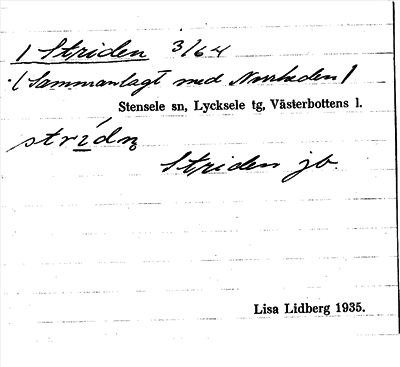 1 Striden 3/64
(Sammanlagt med Norrbäden)
Stensele sn, Lycksele tg, Västerbottens l.
strídn̥
Striden jb.
Lisa Lidberg 1935.